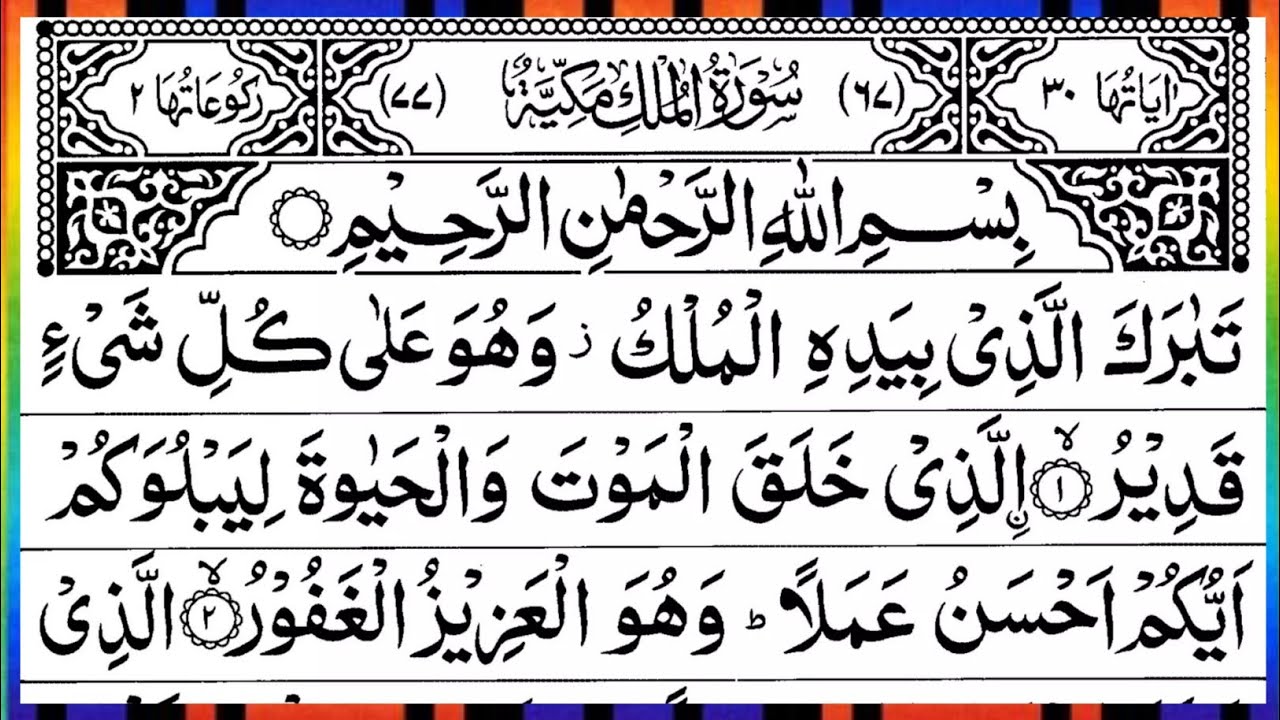 اٰیَاتُهَا ۳۰ (۶۷) سُوْرَةُ الْمُلْكِ مَكِّیَّةٌ (۷۷) رُكُوْعَاتُهَا ۲
بِسْمِ اللّٰهِ الرَّحْمٰنِ الرَّحِیْمِ
تَبٰرَكَ الَّذِیْ بِیَدِهِ الْمُلْكُ ؗ وَهُوَ عَلٰی كُلِّ شَیْءٍ
قَدِیْرُ ۙ﴿۱﴾ ۨالَّذِیْ خَلَقَ الْمَوْتَ وَالْحَیٰوةَ لِیَبْلُوَكُمْ
اَیُّكُمْ اَحْسَنُ عَمَلًا ؕ وَهُوَ الْعَزِیْزُ الْغَفُوْرُ ۙ﴿۲﴾ الَّذِیْ